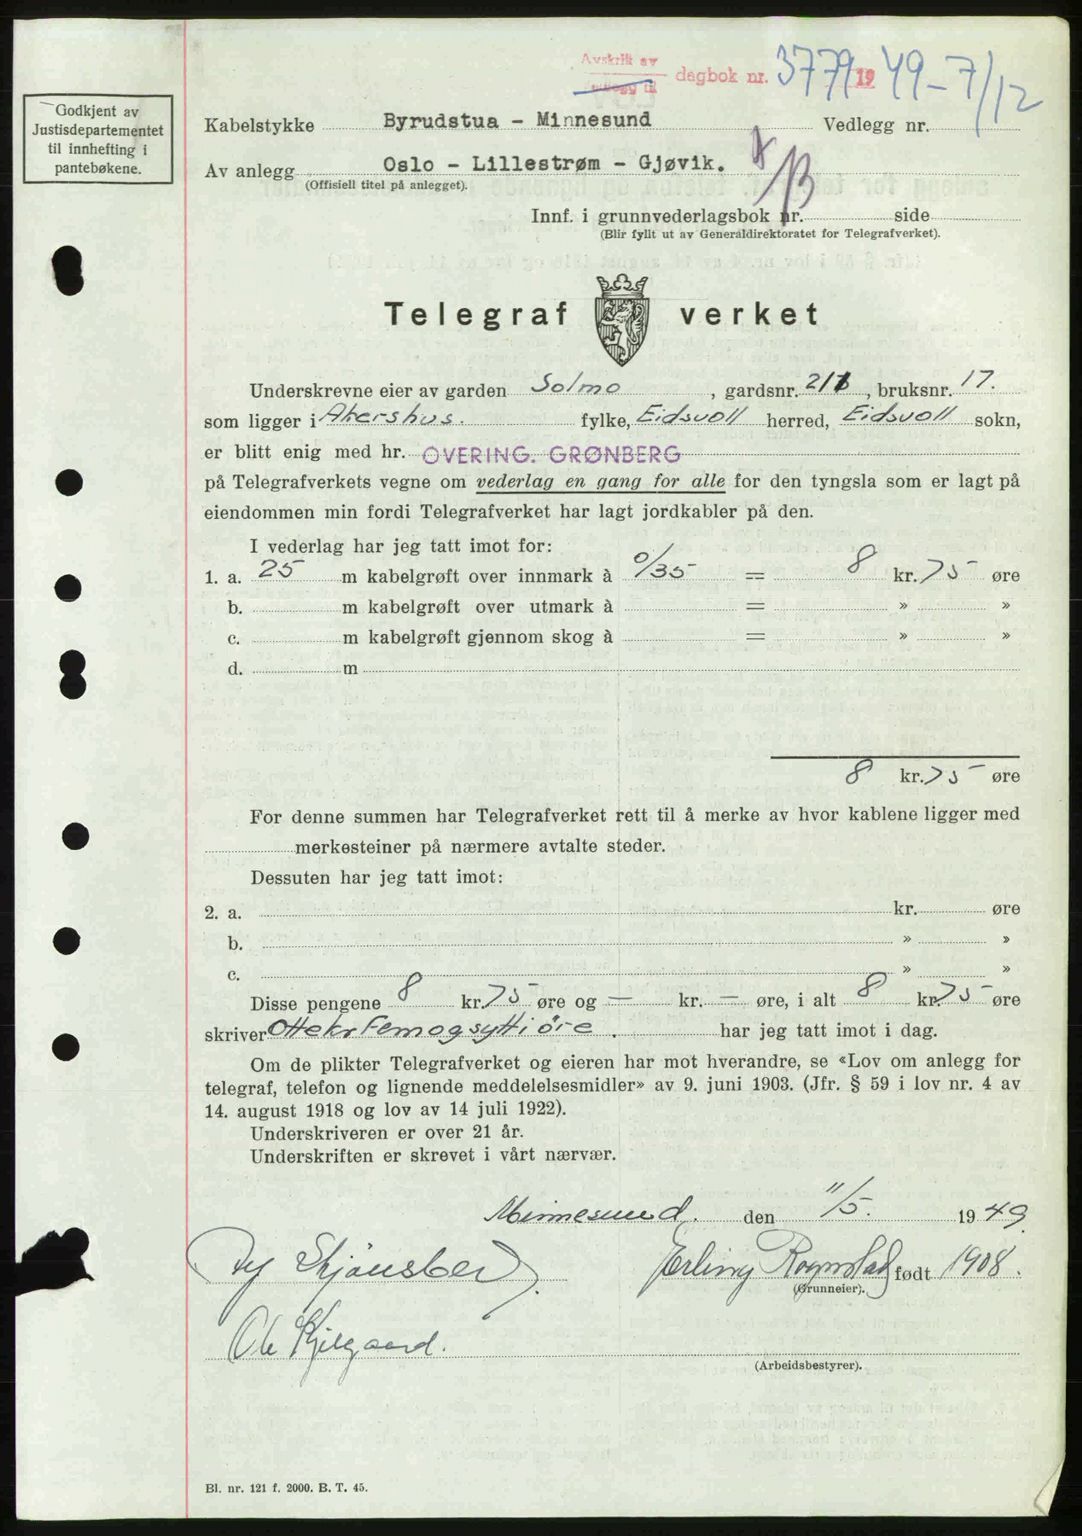 Avskrift av
dagbok nr. 3779 19 49-7/12
Godkjent av
Justisdepartementet
til innhefting i
pantebøkene.
Kabelstykke Byrudstua - Minnesund Vedlegg nr.
Av anlegg Oslo - Lillestrøm - Gjøvik.
(Offisiell titel på anlegget).
Innf. i grunnvederlagsbok nr. side
(Blir fyllt ut av Generaldirektoratet for Telegrafverket).
Telegraf verket
Underskrevne eier av garden Solmo, gardsnr. , bruksnr. 17.
som ligger i Akershus. fylke, Eidsvoll herred, Eidsvoll sokn,
er blitt enig med hr. OVERING. GRØNBERG
på Telegrafverkets vegne om vederlag en gang for alle for den tyngsla som er lagt på
eiendommen min fordi Telegrafverket har lagt jordkabler på den.
I vederlag har jeg tatt imot for:
1. a. 25 m kabelgrøft over innmark à 0/35 = 8 kr. 75 øre
b. m kabelgrøft over utmark à = » »
c. m kabelgrøft gjennom skog à = » »
d. m
8 kr. 75 øre
For denne summen har Telegrafverket rett til å merke av hvor kablene ligger med
merkesteiner på nærmere avtalte steder.
Dessuten har jeg tatt imot:
2. a. kr. øre
b. » »
c. » »
Disse pengene 8 kr. 75 øre og — kr. — øre, i alt 8 kr. 75 øre
skriver Otte kr Femogsytti øre. har jeg tatt imot i dag.
Om de plikter Telegrafverket og eieren har mot hverandre, se «Lov om anlegg for
telegraf, telefon og lignende meddelelsesmidler» av 9. juni 1903. (Jfr. § 59 i lov nr. 4 av
14. august 1918 og lov av 14 juli 1922).
Underskriveren er over 21 år.
Underskriften er skrevet i vårt nærvær.
Minnesund, den 11/5. 1949.
Skjønsberg. Erling Rognstad født 1908.
(Grunneier).
Ole Kjelgaard.
(Arbeidsbestyrer).
Bl. nr. 121 f. 2000. B. T. 45.